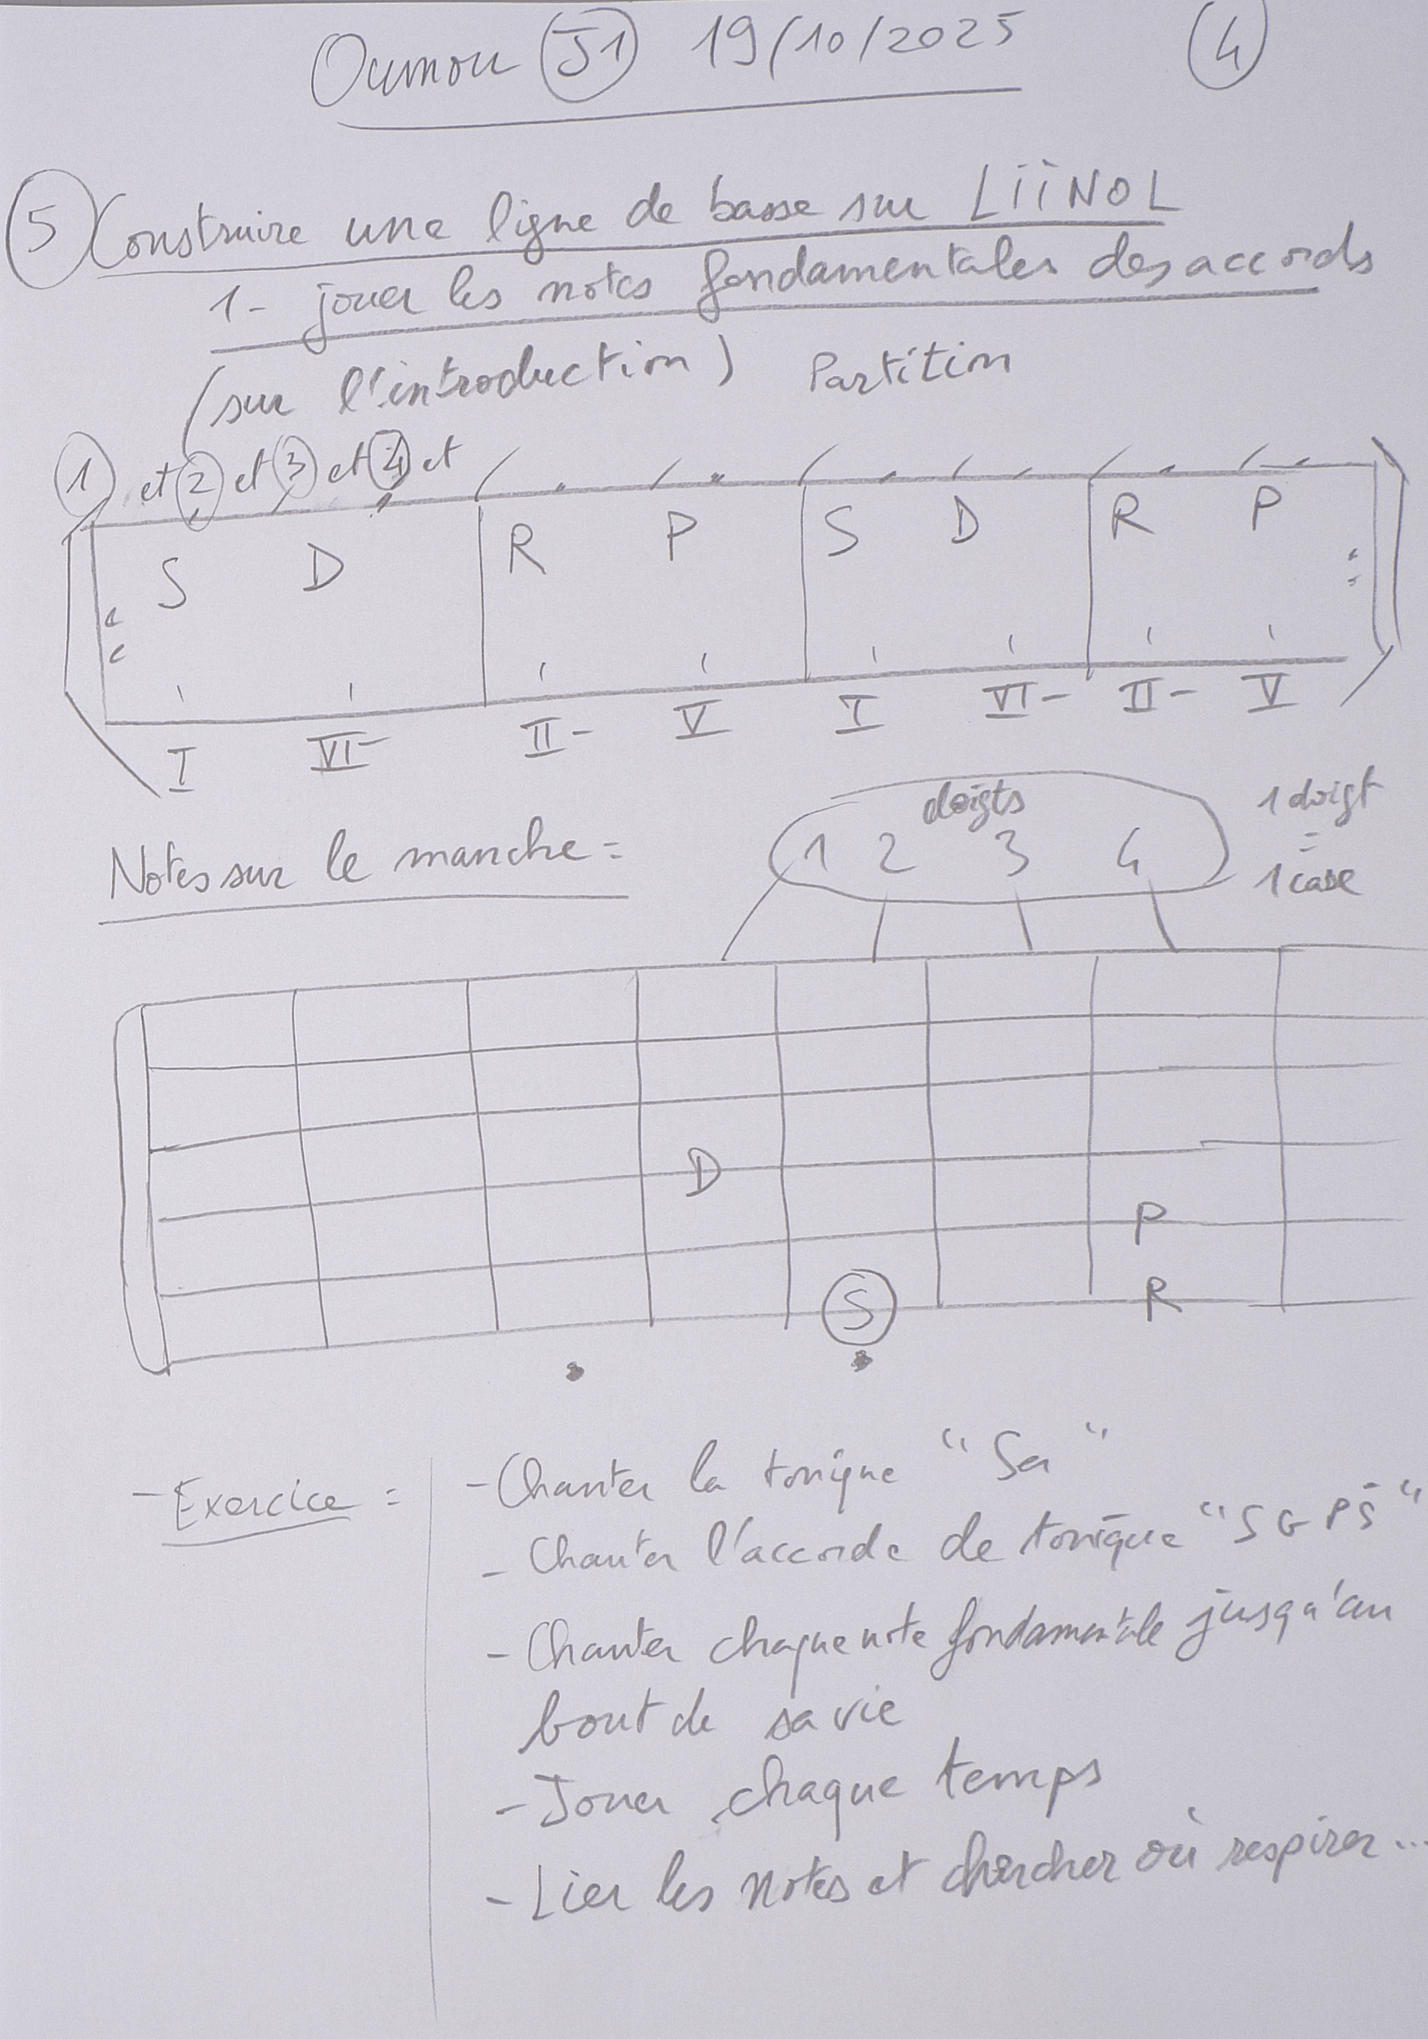 Oumou J1 19/10/2025 4
5 Construire une ligne de basse sur LiiNOL
1- jouer les notes fondamentales des accords
(sur l'introduction) Partition
1 et 2 et 3 et 4 et
S D R P S D R P
I VI- II- V I VI- II- V
doigts
1 doigt
=
1 case
Notes sur le manche =
1 2 3 4
D
P
S R
- Exercice = - Chanter la tonique "Sa"
- Chanter l'accorde de tonique "S G P Ṡ"
- Chanter chaque note fondamentale jusqu'au
bout de sa vie
- Jouer chaque temps
- Lier les notes et chercher où respirer...